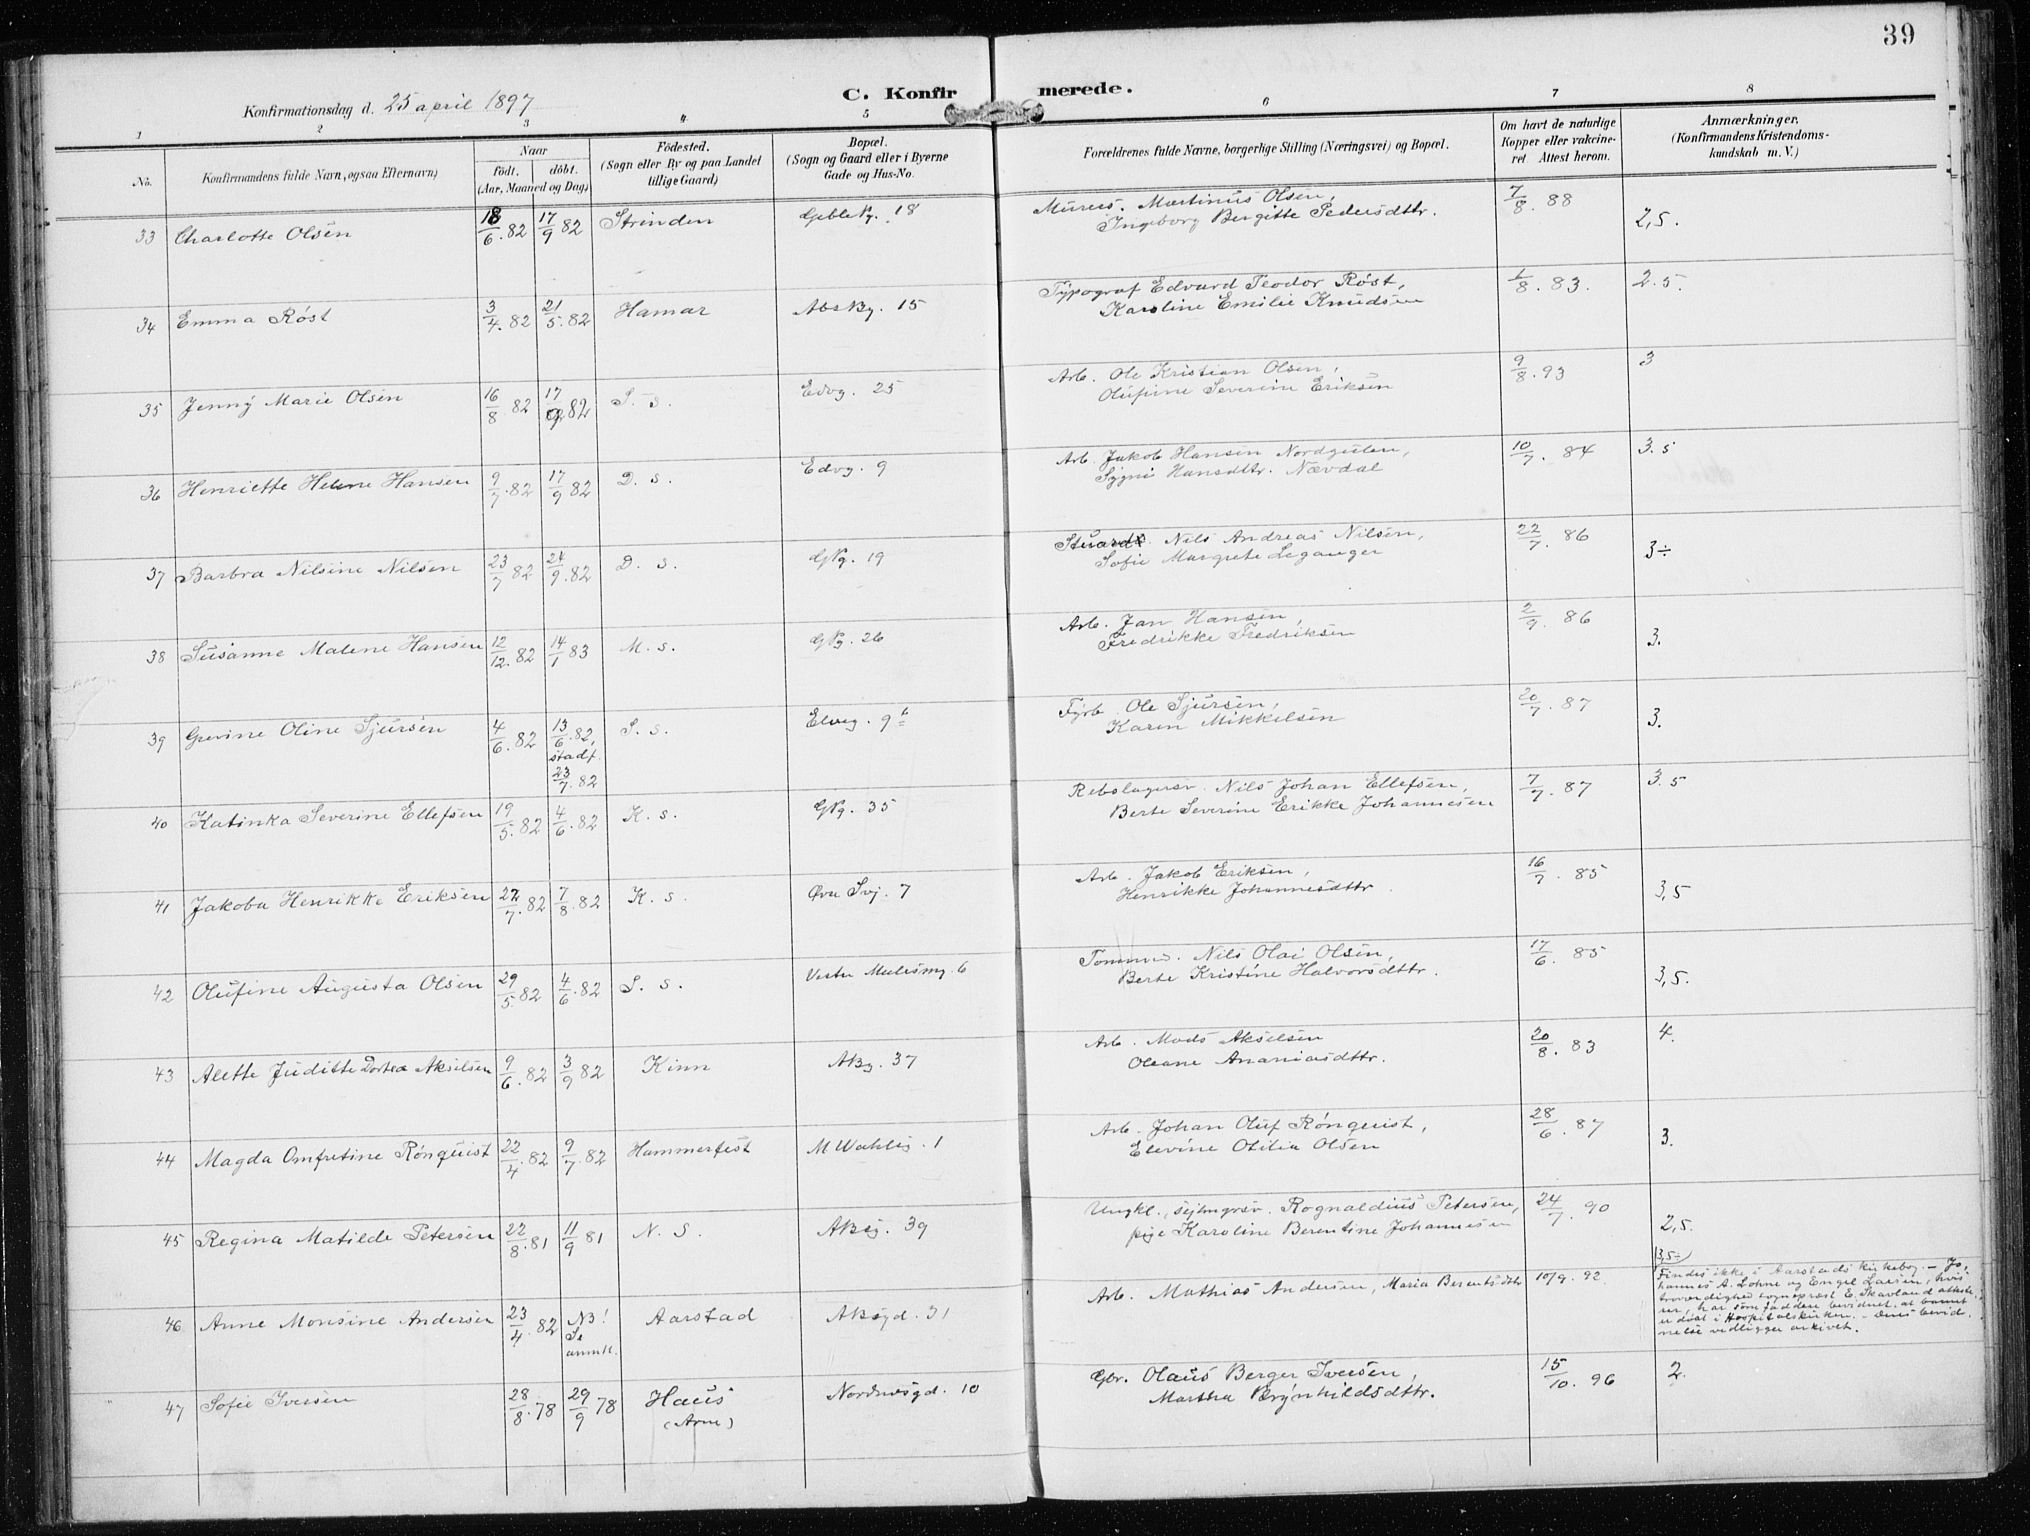 39
C. Konfirmerede.
Konfirmationsdag d. 25 april 1897
1 2 3 4 5 6 7 8
No. Konfirmandens fulde Navn, ogsaa Efternavn) Naar födt. döbt. (Aar, Maaned og Dag) Födested. (Sogn eller By og paa Landet tillige Gaard) Bopæl. (Sogn og Gaard eller i Byerne Gade og Hus-No. Forældrenes fulde Navne, borgerlige Stilling (Næringsvei) og Bopæl. Om havt de naturlige Kopper eller vakcineret Attest herom. Anmærkninger. (Konfirmandens Kristendomskundskab m. V.)
33 Charlotte Olsen 18/6.82 17/9 82 Strinden 18 Murers. Martinus Olsen, 7/8. 88 2,5.
Ingeborg Bergitte Pedersdttr.
34 Emma Røst 3/4.82 21/5.82 Hamar 15 Typograf Edvard Teodor Røst, 1/8. 83. 2.5.
Karoline Emilie Knudsen
35 Jenny Marie Olsen 16/8.82 17/9 82 S. s. Edvg. 25 Arb. Ole Kristian Olsen, 9/8. 93 3
Olufine Severine Eriksen
36 Henriette Helene Hansen 9/7.82 17/9 82 D. s. Edvg. 9 Arb. Jakob Hansen Nordgulen, 10/7. 84 3.5
Sygni Hansdttr. Nævdal
37 Barbra Nilsine Nilsen 23/7 82 24/9.82 D. s. 19 Stuards. Nils Andreas Nilsen, 22/7. 86 3÷
Sofie Margrete Leganger
38 Susanne Malene Hansen 12/12.82 14/1 83 M. s. 26 Arb. Jan Hansen, 2/9. 86 3.
Fredrikke Fredriksen
39 Grevine Oline Sjursen 4/6.82 13/6.82, S. s. Elveg. 9 Fyrb. Ole Sjursen, 20/7. 87 3.
stadf. Karen Mikkelsen
23/7.82
40 Katinka Severine Ellefsen 19/5.82 4/6.82 K. s. 35 Rebslagersv. Nils Johan Ellefsen, 7/7. 87 3.5
Berte Severine Erikke Johannesen
41 Jakoba Henrikke Eriksen 27/7.82 7/8.82 K. s. Øvre Svj. 7 Arb. Jakob Eriksen, 16/7. 85 3,5
Henrikke Johannesdttr.
42 Olufine Augusta Olsen 29/5.82 4/6.82 S. s. Vestre Mulesmg. 6 Tømmer. Nils Olai Olsen, 17/6. 85 3,5.
Berte Kristine Halvorsdttr.
43 Alette Juditte Dortea Aksilsen 9/6.82 3/9 82 Kinn 37 Arb. Mads Aksilsen 20/8. 83 4.
Oleane Ananiasdttr.
44 Magda Omfretine Rønquist 22/4.82 9/7.82 Hammerfest M Wahlsg. 1 Arb. Johan Oluf Rønquist, 28/6. 87 3.
Elevine Otilia Olsen
45 Regina Matilde Petersen 22/8.81 11/9 81 N. S. 39 Ungkl., sejlmgrsv. Rognaldius Petersen, 24/7. 90 2,5.
pige Karoline Berentine Johannesen
46 Anne Monsine Andersen 23/4.82 NB! Se anm. Aarstad 31 Arb. Mathias Andersen, Maria Berentsdttr 10/9. 92 3,5÷
Findes ikke i Aarstads kirkebog. – Johannes A. Lohne og Engel Larsen, hvis
troværdighed sogneprest E. Skavland attesterer, har som faddere bevidnet, at barnet
er døbt i Hospitalskirken. – Denne bevidnelse vedligger arkivet.
47 Sofie Iversen 28/8.78 29/9 78 Haus Nordnesgd. 10 Gbr. Olaus Berger Iversen, 15/10. 96 2.
(Arne) Martha Brynhildsdttr.